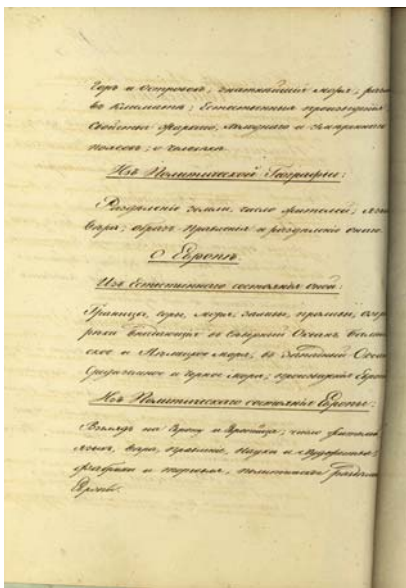 горъ и Острововъ; знатнѣйшія моря;
въ Климата; Естественныя произведенія
свойства жаркаго, холоднаго и умѣреннаго
поясовъ; о человѣкѣ.
Изъ Политической Географіи:
Раздѣленіе земли, число жителей;
вѣра; образъ правленія и раздѣленіе онаго.
О Европѣ.
Изъ Естественнаго состоянія оной:
Границы, горы, моря, заливы, проливы,
рѣки впадающія въ Сѣверный Океанъ
ское и Нѣмецкое моря, въ Западный
Средиземное и Черное моря; произведенія
Изъ Политическаго состоянія Европы:
Взглядъ на Европу и Европейца; число
языкъ, вѣра, правленіе, науки и художества;
фабрики и торговля, политическое
Европы.